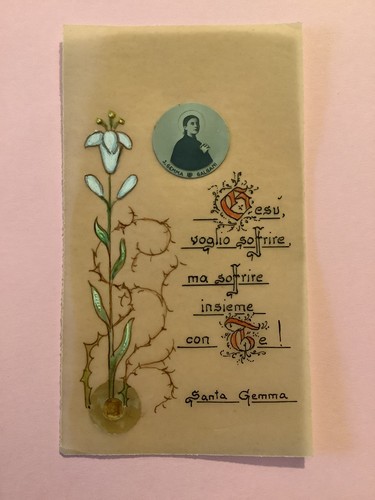 S. GEMMA GALGANI
Gesù,
voglio soffrire,
ma soffrire
insieme
con Te!
Santa Gemma